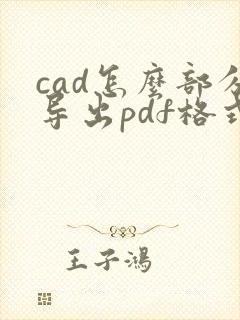 cad怎麼部分
导出pdf格式
王子鴻